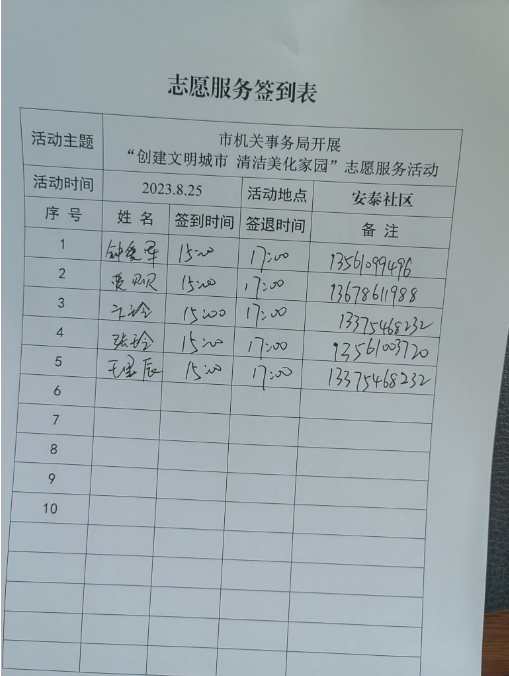 志愿服务签到表
活动主题 市机关事务局开展
“创建文明城市 清洁美化家园”志愿服务活动
活动时间 2023.8.25 活动地点 安泰社区
序 号 姓 名 签到时间 签退时间 备 注
1 15:00 17:00 13561099496
2 15:00 17:00 13678611988
3 15:00 17:00 13375468232
4 张玲 15:00 17:00 13561003720
5 15:00 17:00 13375468232
6
7
8
9
10